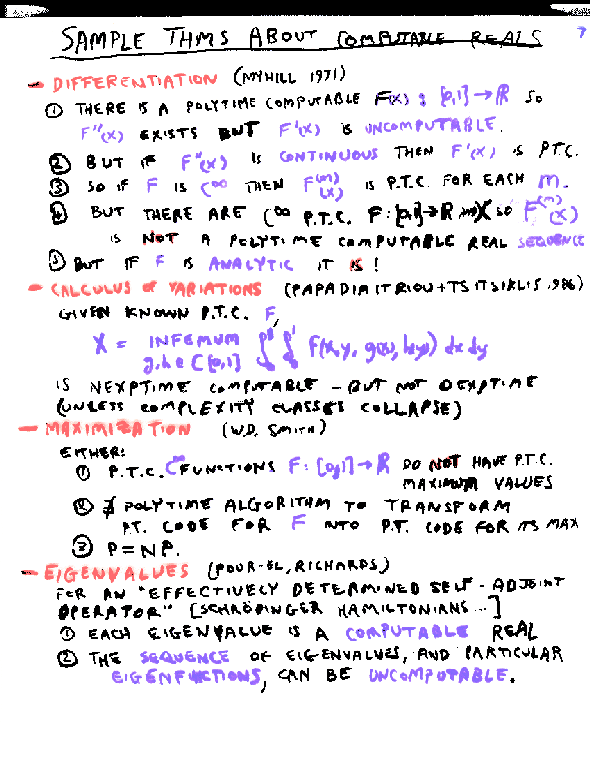 SAMPLE THMS ABOUT COMPUTABLE REALS
7
- DIFFERENTIATION (MYHILL 1971)
① THERE IS A POLYTIME COMPUTABLE F(x) : [0,1] → R SO
F''(x) EXISTS BUT F'(x) IS UNCOMPUTABLE.
② BUT IF F''(x) IS CONTINUOUS THEN F'(x) IS P.T.C.
③ SO IF F IS C^∞ THEN F^(m)(x) IS P.T.C. FOR EACH m.
④ BUT THERE ARE C^∞ P.T.C. F:[0,1]→R SO F^(m)(x)
IS NOT A POLYTIME COMPUTABLE REAL SEQUENCE
⑤ BUT IF F IS ANALYTIC IT IS!
- CALCULUS OF VARIATIONS (PAPADIMITRIOU + TSITSIKLIS 1986)
GIVEN KNOWN P.T.C. F,
X = INFEMUM ∫∫ F(x,y, g(x), h(y)) dx dy
g,h ∈ C[0,1]
IS NEXPTIME COMPUTABLE - BUT NOT DEXPTIME
(UNLESS COMPLEXITY CLASSES COLLAPSE)
- MAXIMIZATION (W.D. SMITH)
EITHER:
① P.T.C. C^∞ FUNCTIONS F: [0,1] → R DO NOT HAVE P.T.C.
MAXIMUM VALUES
② ∄ POLYTIME ALGORITHM TO TRANSFORM
P.T. CODE FOR F INTO P.T. CODE FOR ITS MAX
③ P=NP.
- EIGENVALUES (POUR-EL, RICHARDS)
FOR AN "EFFECTIVELY DETERMINED SELF-ADJOINT
OPERATOR" [SCHRÖDINGER HAMILTONIANS...]
① EACH EIGENVALUE IS A COMPUTABLE REAL
② THE SEQUENCE OF EIGENVALUES, AND PARTICULAR
EIGENFUNCTIONS, CAN BE UNCOMPUTABLE.